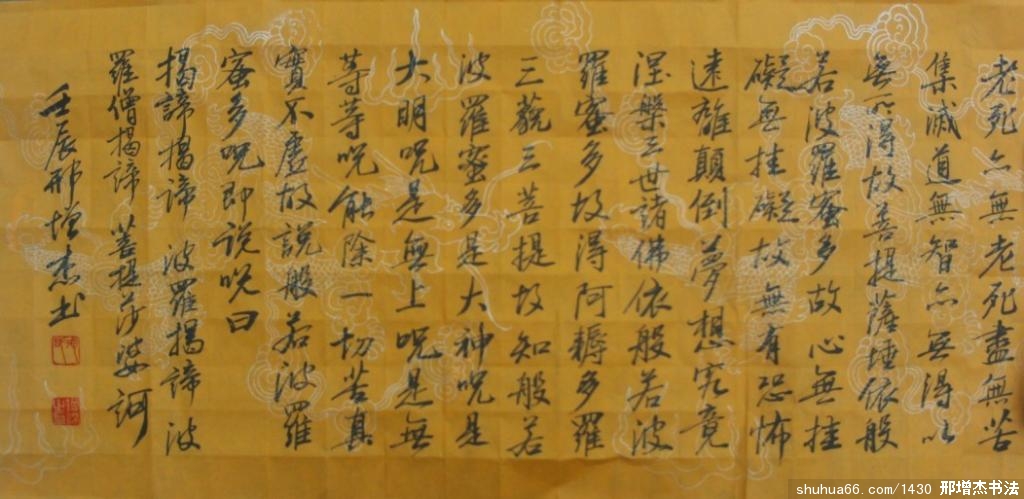 老死亦無老死盡無苦
集滅道無智亦無得以
無所得故菩提薩埵依般
若波羅蜜多故心無挂
礙無挂礙故無有恐怖
遠離顛倒夢想究竟
涅槃三世諸佛依般若波
羅蜜多故得阿耨多羅
三藐三菩提故知般若
波羅蜜多是大神呪是
大明呪是無上呪是無
等等呪能除一切苦真
實不虛故說般若波羅
蜜多呪即說呪曰
揭諦揭諦 波羅揭諦 波
羅僧揭諦 菩提莎婆訶
壬辰邢增杰书
shuhua66.com/1430 邢增杰书法